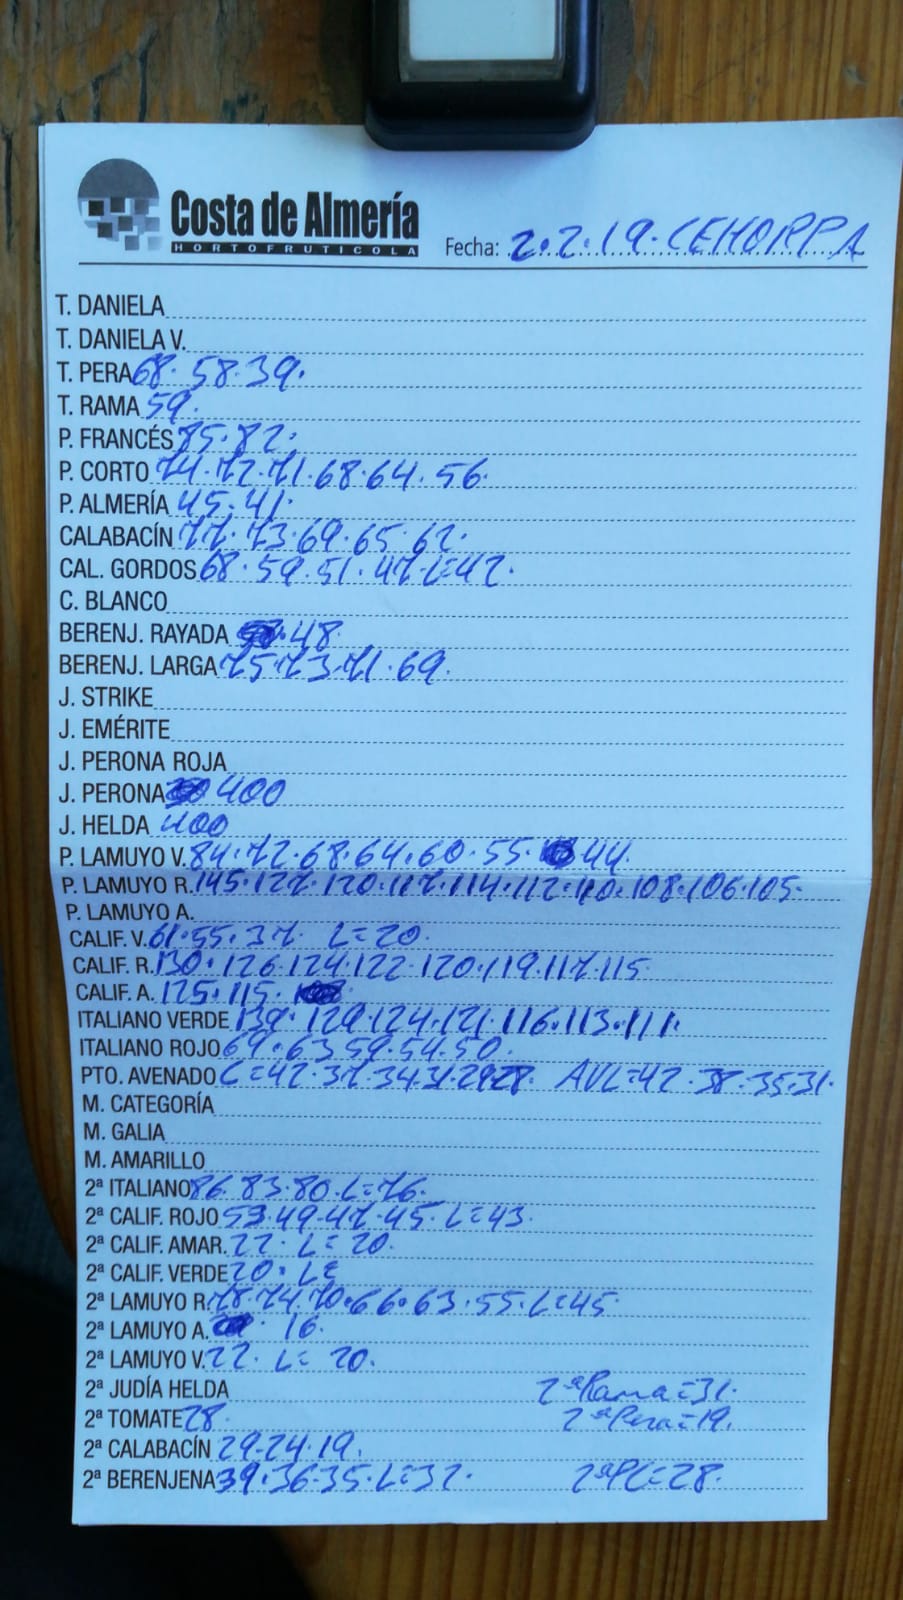 Costa de Almería
HORTOFRUTICOLA
Fecha: 2.2.19. CEHORPA
T. DANIELA
T. DANIELA V.
T. PERA 68. 58.39.
T. RAMA 59.
P. FRANCÉS 85.82.
P. CORTO 74.72.71.68.64.56.
P. ALMERÍA 45.41.
CALABACÍN 77.73.69.65.62.
CAL. GORDOS 68.59.51.47-L=42.
C. BLANCO
BERENJ. RAYADA 48.
BERENJ. LARGA 75.73.71.69.
J. STRIKE
J. EMÉRITE
J. PERONA ROJA
J. PERONA 400
J. HELDA 400
P. LAMUYO V. 84.72.68.64.60.55. 44.
P. LAMUYO R. 145.127.120.117.114.112.110.108.106.105.
P. LAMUYO A.
CALIF. V. 61.55.37. L=20.
CALIF. R. 130.126.124.122.120.119.117.115.
CALIF. A. 125.115.
ITALIANO VERDE 139.129.124.121.116.113.111.
ITALIANO ROJO 69.63.59.54.50.
PTO. AVENADO L=42.37.34.31.29.28. AVL=42.38.35.31.
M. CATEGORÍA
M. GALIA
M. AMARILLO
2ª ITALIANO 86.83.80.L=76.
2ª CALIF. ROJO 53.49.47.45.L=43.
2ª CALIF. AMAR. 22. L=20.
2ª CALIF. VERDE 20. L=
2ª LAMUYO R. 78.74.70.66.63.55.L=45
2ª LAMUYO A. 16.
2ª LAMUYO V. 22. L=20.
2ª JUDÍA HELDA 2ªRama=31.
2ª TOMATE 28. 2ªPera=19.
2ª CALABACÍN 29-24.19.
2ª BERENJENA 39.36.35.L=32. 2ªPC=28.